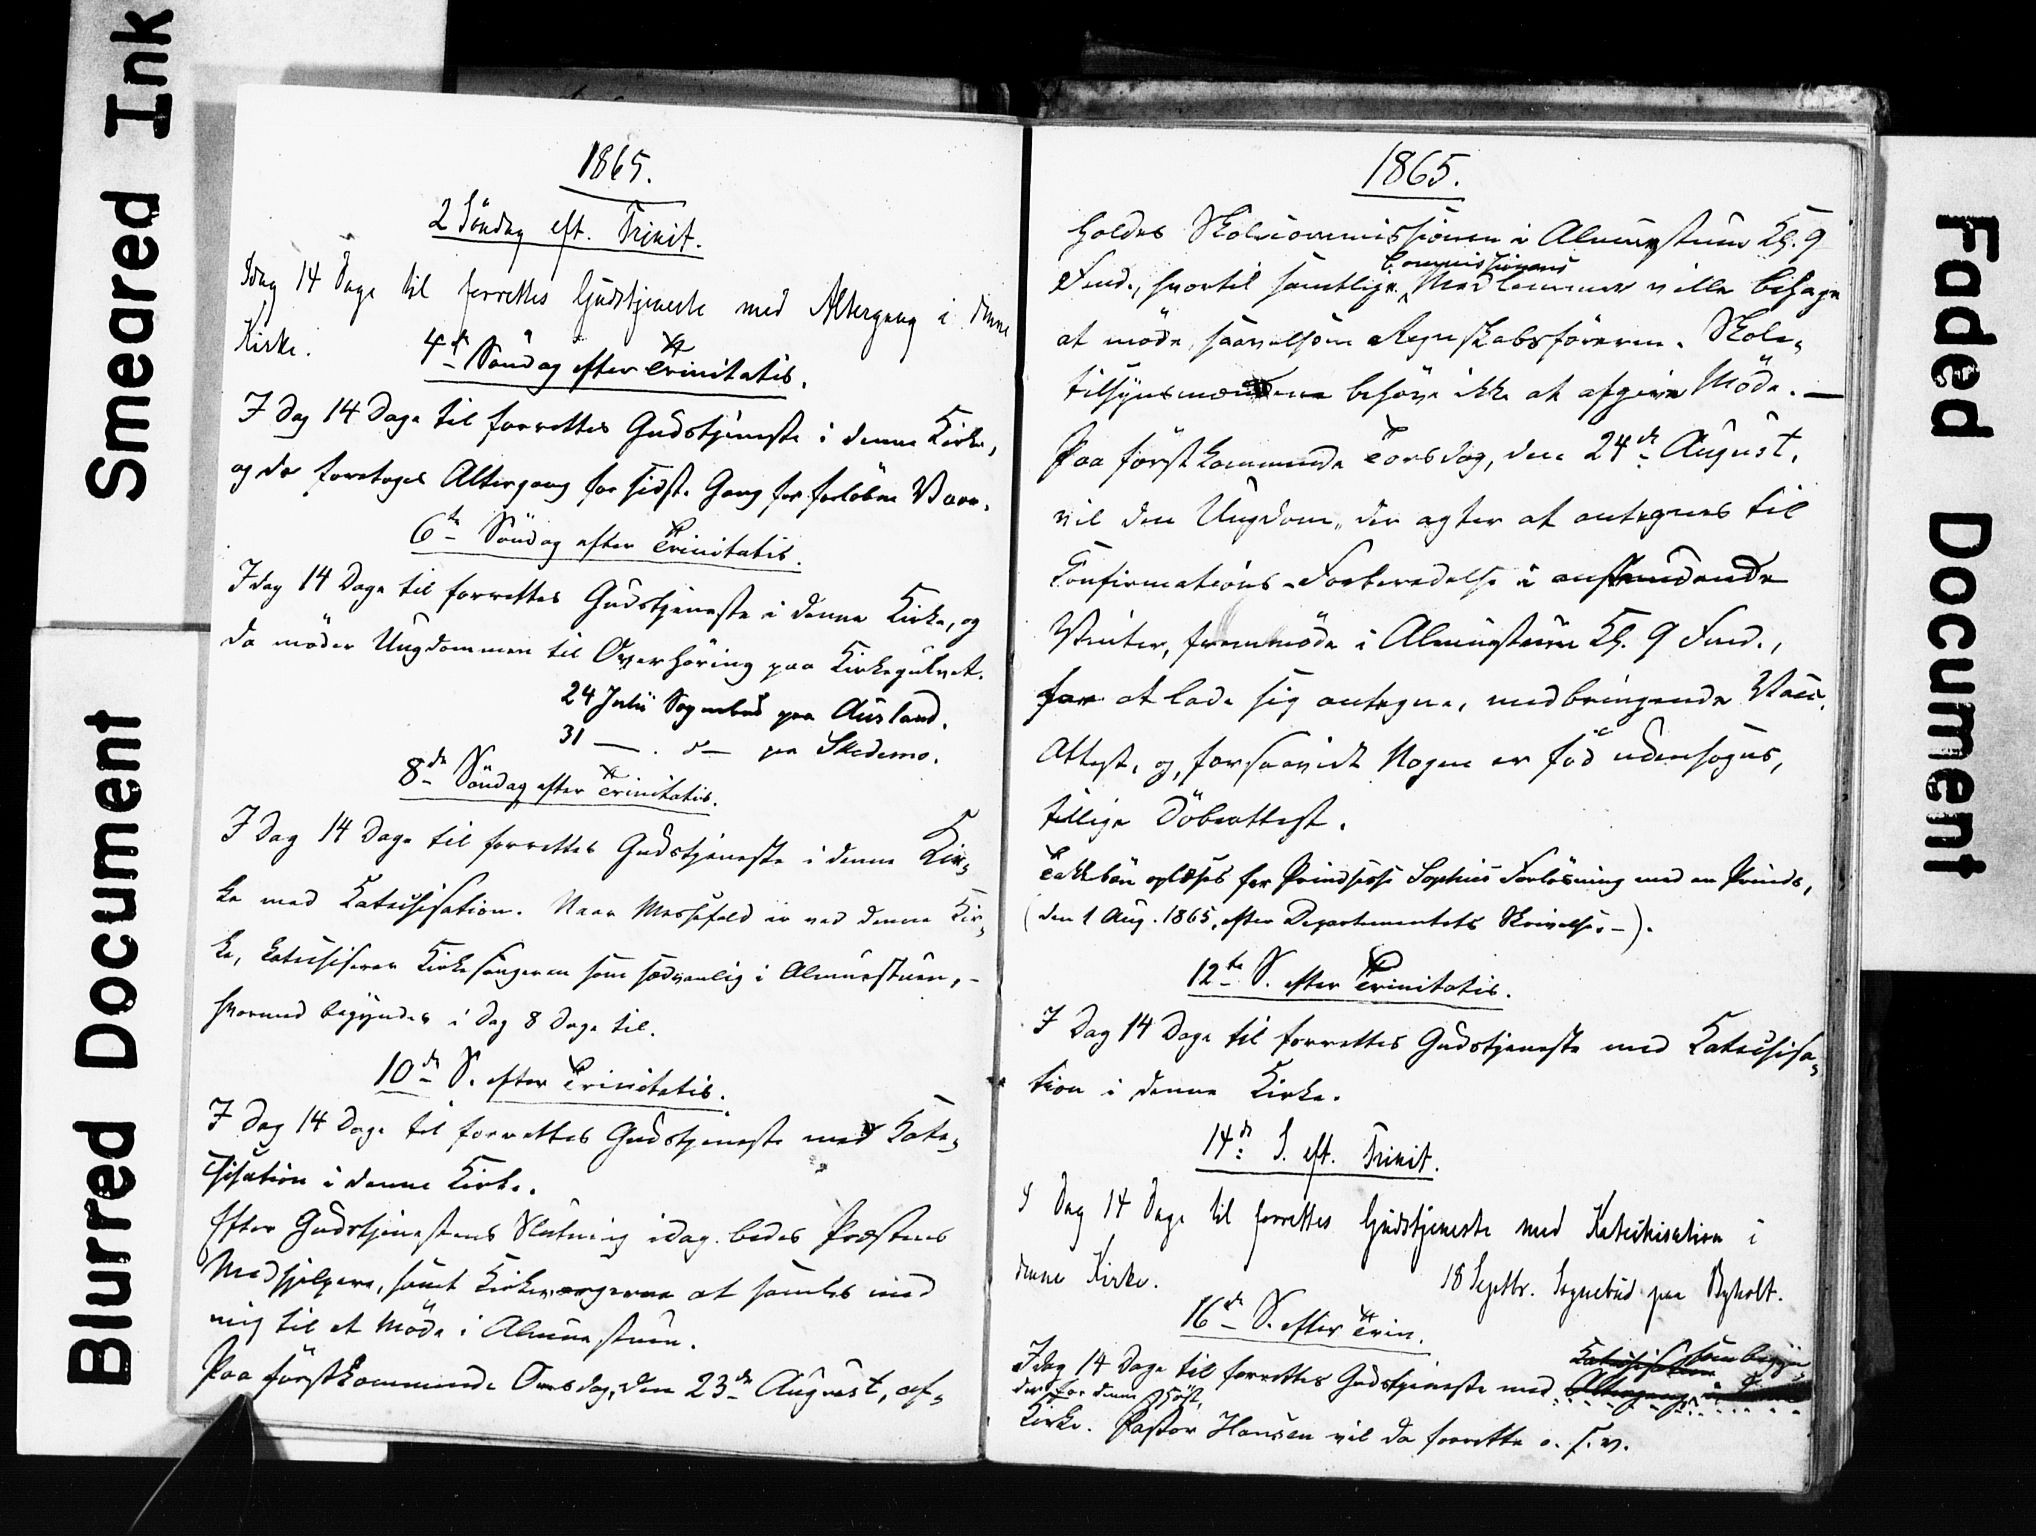 Smeared Ink
Blurred Document
Faded Document
1865.
2 Söndag eft. Trinit.
Idag 14 Dage til forrettes Gudstjeneste med Altergang i denne
Kirke.
4de Söndag efter Trinitatis.
I Dag 14 Dage til forrettes Gudstjeneste i denne Kirke,
og da foretages Altergang for sidste Gang for forløbne Vaar.
6te Söndag efter Trinitatis.
Idag 14 Dage til forrettes Gudstjeneste i denne Kirke, og
da möder Ungdommen til Overhöring paa Kirkegulvet.
24 Julii Sognebud paa Ausland.
31 — . d— pa Skedsmo.
8de Söndag efter Trinitatis.
I Dag 14 Dage til forrettes Gudstjeneste i denne Kir-
ke med Katechisation. Naar Messefald er ved denne Kir-
ke, katechiserer Kirkesangeren som sædvanlig i Almuestuen, -
hvormed begyndes i Dag 8 Dage til.
10de S. efter Trinitatis.
I Dag 14 Dage til forrettes Gudstjeneste med Kate-
chisation i denne Kirke.
Efter Gudstjenestens Slutning idag bedes Præstens
Medhjelpere, samt Kirkeværgerne at samles med
mig til et Möde i Almuestuen.
Paa förstkommende Onsdag, den 23de August, af-
1865.
holdes Skolecommissionen i Almuestuen Kl. 9
Commissionens
Form., hvortil samtlige Medlemmer ville behage
at möde, saavelsom Regnskabsföreren. Skole-
tilsynsmændene behöve ikke at afgive Möde. —
Paa förstkommende Torsdag, den 24de August,
vil den Ungdom, der agter at antegnes til
Confirmations-Forberedelse i anstundende
Vinter, fremmöde i Almuestuen Kl. 9 Form.,
for at lade sig antegne, medbringende Vacc.
Attest, og, forsaavidt Nogen er föd udensogns,
tillige Döbeattest.
Takkebön oplæses for Prindsesse Sophies Forlösning med en Prinds,
(den 1 Aug. 1865, efter Departementets Skrivelse. -).
12te S. efter Trinitatis.
I Dag 14 Dage til forrettes Gudstjeneste med Katechisa-
tion i denne Kirke.
14de S. eft. Trinit.
I Dag 14 Dage til forrettes Gudstjeneste med Katechisation i
denne Kirke. 18 Septbr. Sognebud paa Byholt.
16de S. efter Trin.
Katechisation som begyn-
Idag 14 Dage til forrettes Gudstjeneste med Altergang i denne
der for denne Höst,
Kirke. Pastor Hansen vil da forrette o. s. v.